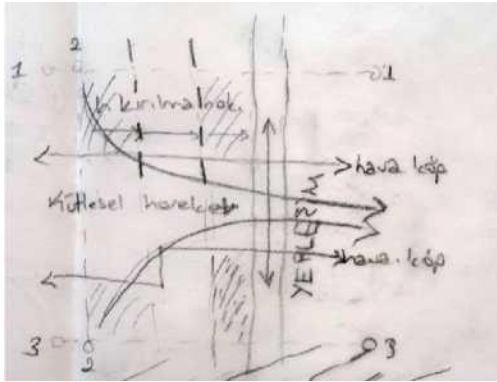 2
1 1
kırılma nok.
hava köp
Kütlesel hareket
YERLEŞİM
hava köp
3 2 3